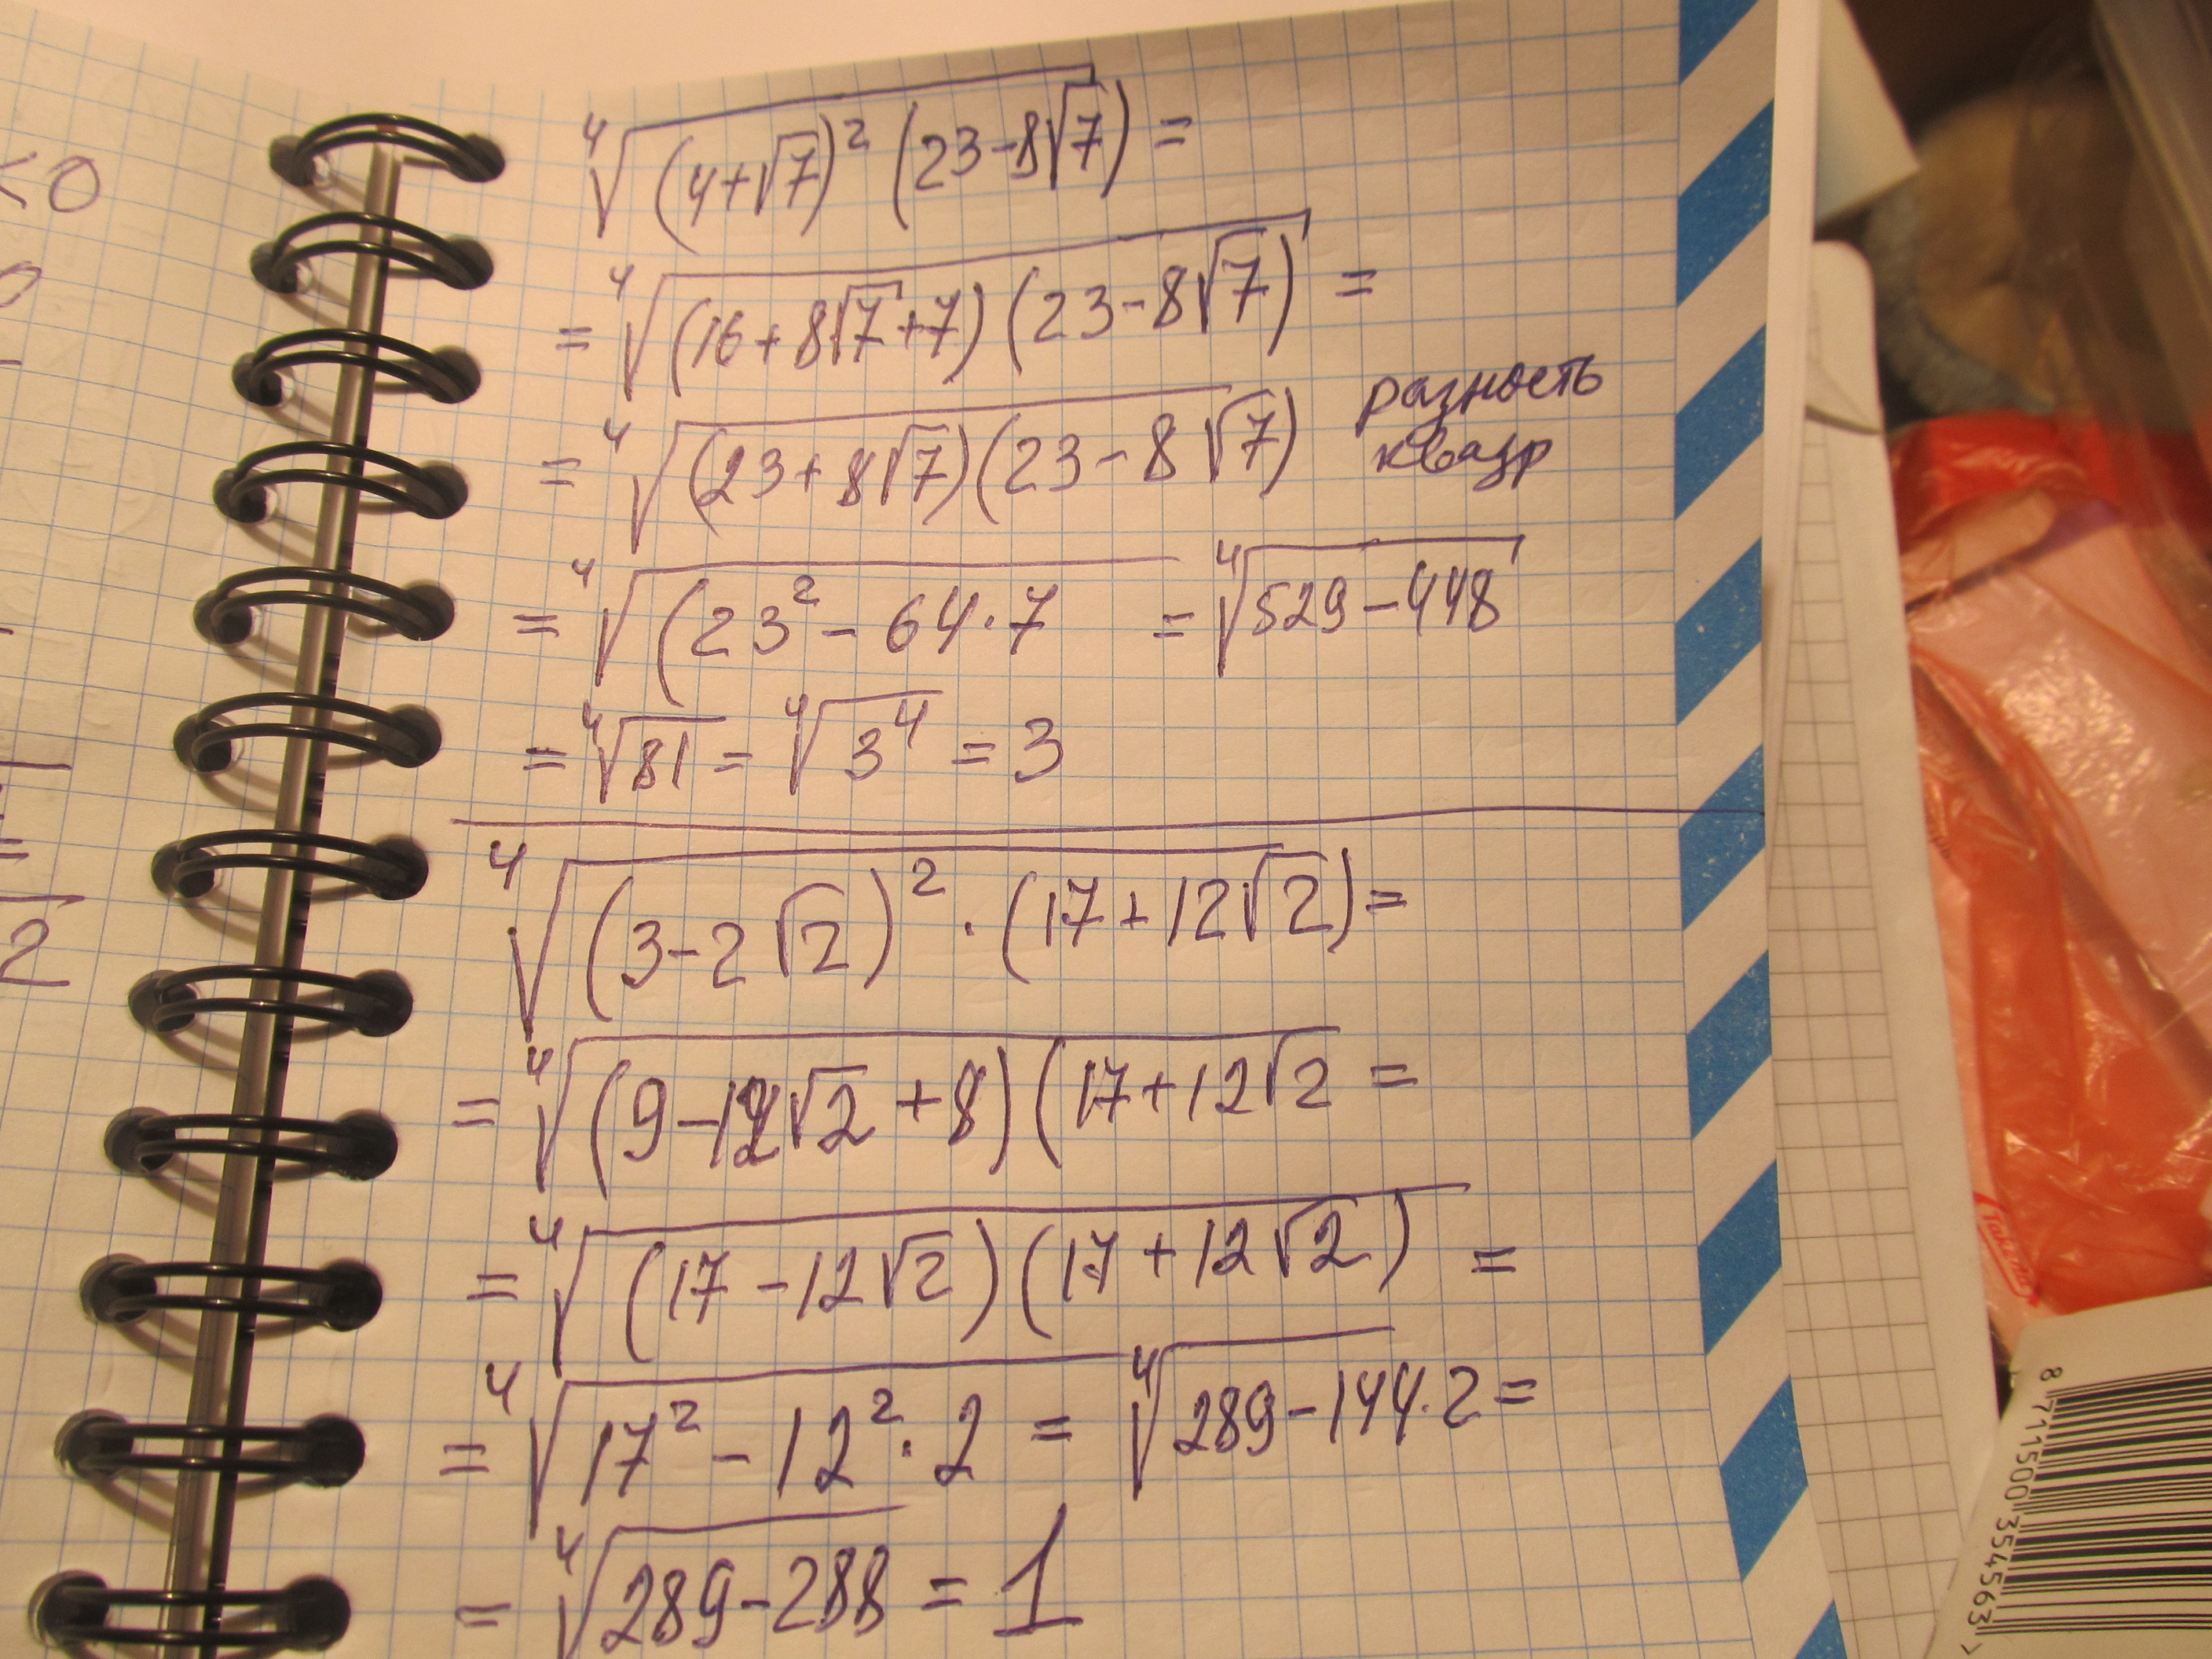 <0
⁴√(4+√7)² (23-8√7) =
= ⁴√(16+8√7+7)(23-8√7) =
= ⁴√(23+8√7)(23-8√7) разность
квадр
= ⁴√(23² - 64·7 = ⁴√529-448
= ⁴√81 = ⁴√3⁴ = 3
⁴√(3-2√2)² · (17+12√2) =
= ⁴√(9-12√2+8)(17+12√2 =
= ⁴√(17-12√2)(17+12√2) =
= ⁴√17² - 12²·2 = ⁴√289-144·2 =
= ⁴√289-288 = 1
2
8 711500 354563 >